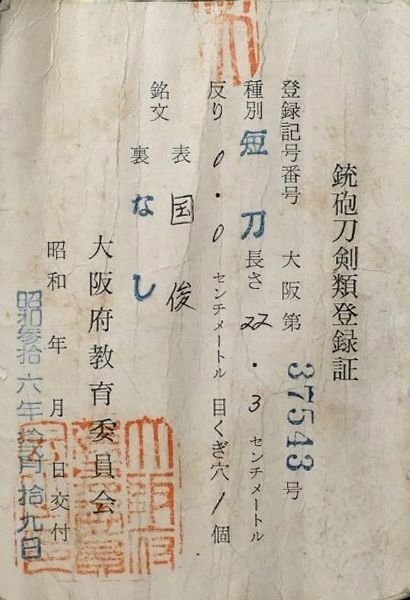 銃砲刀剣類登録証
登録記号番号 大阪第 37543 号
種別 短刀 長さ 22.3 センチメートル
反り 0.0 センチメートル 目くぎ穴 1 個
銘文 表 国俊
裏 なし
大阪府教育委員会
昭和 年 月 日交付
昭和参拾六年 月拾九日